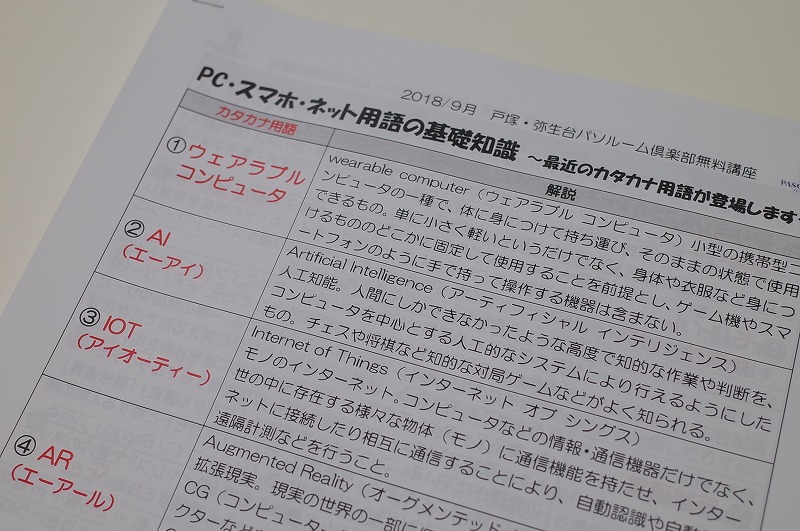 2018/9月 戸塚・弥生台パソルーム倶楽部無料講座
PC・スマホ・ネット用語の基礎知識 ～最近のカタカナ用語が登場します
カタカナ用語
解説
①ウェアラブル
コンピュータ
wearable computer（ウェアラブル コンピュータ）小型の携帯型コ
ンピュータの一種で、体に身につけて持ち運び、そのままの状態で使用
できるもの。単に小さく軽いというだけでなく、身体や衣服など身につ
けるもののどこかに固定して使用することを前提とし、ゲーム機やスマ
ートフォンのように手で持って操作する機器は含まない。
②AI
（エーアイ）
Artificial Intelligence（アーティフィシャル インテリジェンス）
人工知能。人間にしかできなかったような高度で知的な作業や判断を、
コンピュータを中心とする人工的なシステムにより行えるようにした
もの。チェスや将棋など知的な対局ゲームなどがよく知られる。
③IOT
（アイオーティー）
Internet of Things（インターネット オブ シングス）
モノのインターネット。コンピュータなどの情報・通信機器だけでなく、
世の中に存在する様々な物体（モノ）に通信機能を持たせ、インター
ネットに接続したり相互に通信することにより、自動認識や自動
遠隔計測などを行うこと。
④AR
（エーアール）
Augmented Reality（オーグメンテッド
拡張現実。現実の世界の一部に
CG（コンピュータ
クターなど